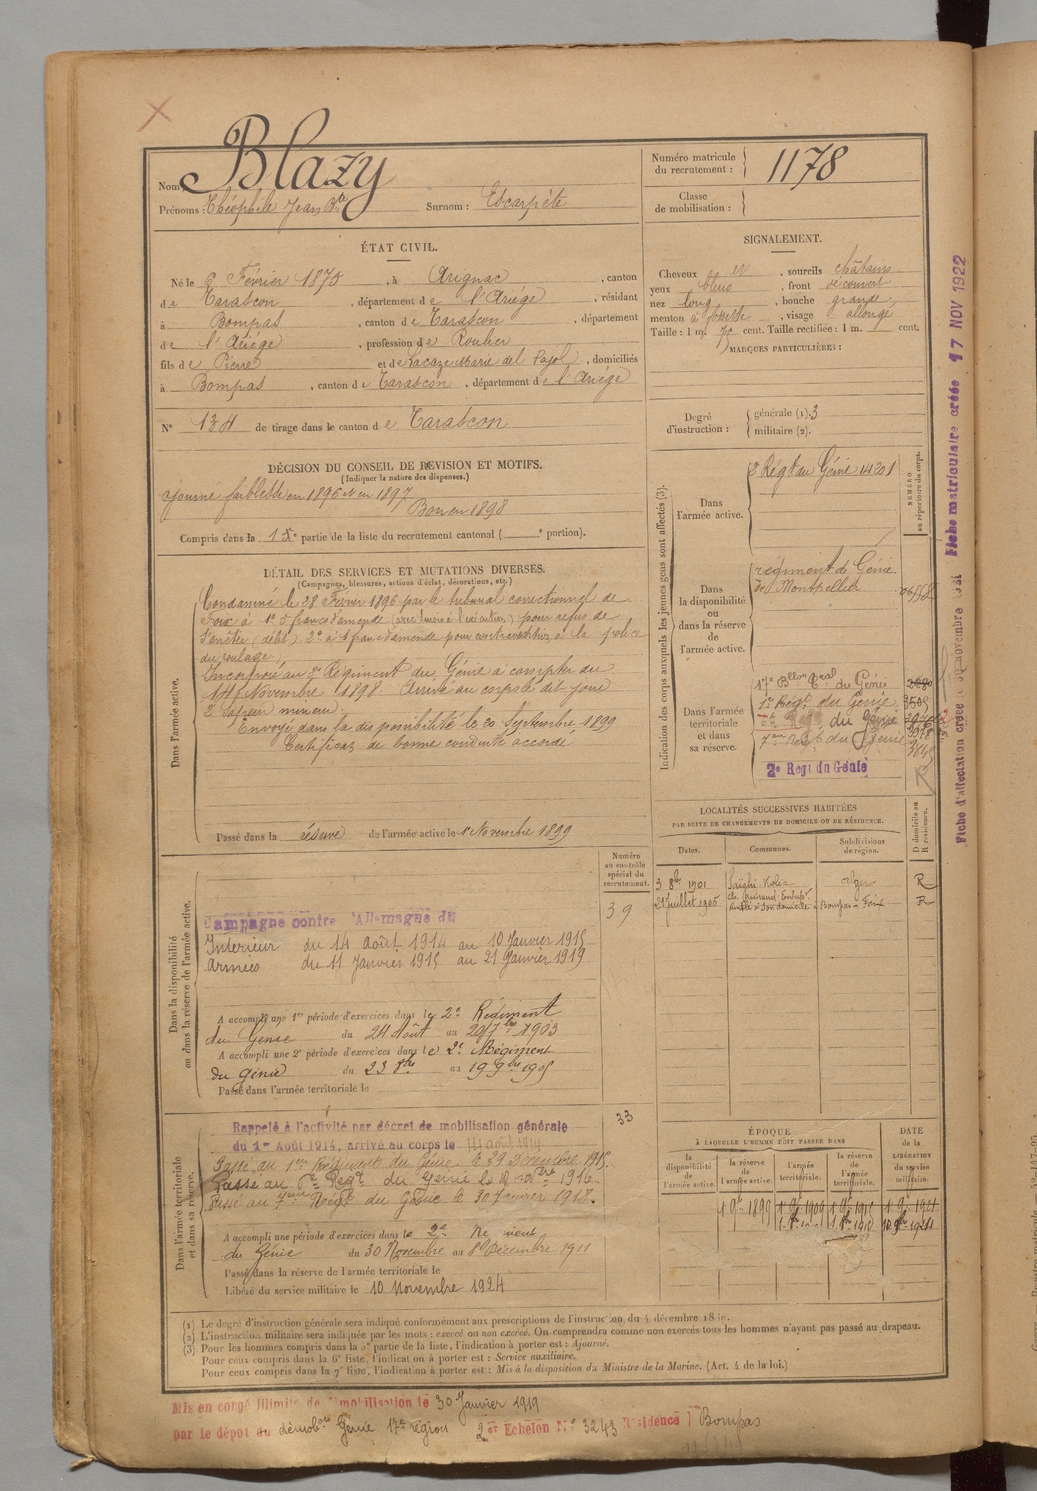 Nom : Blazy
Prénoms : Théophile Jean Bte Surnom : Escarpète
Numéro matricule du recrutement : 1178
Classe de mobilisation :
ÉTAT CIVIL.
Né le 6 Février 1875, à Arignac, canton
de Tarascon, département de l'Ariège, résidant
à Bompas, canton de Tarascon, département
de l'Ariège, profession de Roulier
fils de Pierre et de Lacaze Marie del Pajol, domiciliés
à Bompas, canton de Tarascon, département de l'Ariège
N° 134 de tirage dans le canton de Tarascon
SIGNALEMENT.
Cheveux et, sourcils châtains
yeux bleus, front découvert
nez long, bouche grande
menton à fossette, visage allongé
Taille : 1 m. 70 cent. Taille rectifiée : 1 m. cent.
MARQUES PARTICULIÈRES :
Degré d'instruction : générale (1). 3
militaire (2).
DÉCISION DU CONSEIL DE REVISION ET MOTIFS.
(Indiquer la nature des dispenses.)
ajourné faiblesse en 1896 et en 1897
Bon en 1898
Compris dans la 1re partie de la liste du recrutement cantonal ( e portion).
DÉTAIL DES SERVICES ET MUTATIONS DIVERSES.
(Campagnes, blessures, actions d'éclat, décorations, etc.)
Dans l'armée active.
Condamné le 28 Février 1896 par le tribunal correctionnel de
Foix à 1° 5 francs d'amende pour refus de
s'arrêter 2° à 1 franc d'amende pour contravention à la police
du roulage
Incorporé au 2e Régiment du Génie à compter du
14 Novembre 1898. Arrivé au corps le dit jour
2e Sapeur mineur.
Envoyé dans la disponibilité le 20 Septembre 1899
Certificat de bonne conduite accordé
Passé dans la réserve de l'armée active le 1er Novembre 1899
Indication des corps auxquels les jeunes gens sont affectés (3).
NUMÉRO au répertoire du corps.
Dans l'armée active.
2 Régt du Génie 14201
Dans la disponibilité ou dans la réserve de l'armée active.
régiment de Génie
de Montpellier
Dans l'armée territoriale et dans sa réserve.
17e Bllon Tral du Génie
1er Régt du Génie 3505
6e Regt du génie
7eme Regt du Génie
2e Regt du Génie
R
LOCALITÉS SUCCESSIVES HABITÉES
PAR SUITE DE CHANGEMENTS DE DOMICILE OU DE RÉSIDENCE.
Dates. Communes. Subdivisions de région. D domicile ou R résidence.
3 8bre 1901 Alger R
29 Juillet 1905 Bompas Foix R
Numéro au contrôle spécial du recrutement.
39
Dans la disponibilité ou dans la réserve de l'armée active.
Campagne contre l'Allemagne du
Intérieur du 14 août 1914 au 10 Janvier 1915
Armées du 11 Janvier 1915 au 21 Janvier 1919
A accompli une 1re période d'exercices dans le 2e Régiment
du Génie du 24 Août au 20 7bre 1903
A accompli une 2e période d'exercices dans le 2e Régiment
du génie du 23 8bre au 19 9bre 1905
Passé dans l'armée territoriale le
33
Dans l'armée territoriale et dans sa réserve.
Rappelé à l'activité par décret de mobilisation générale
du 1er Août 1914, arrivé au corps le 14 août 1914
Passé au 1er Régiment du Génie le 29 Décembre 1915.
Passé au 6e Regt du Génie le 1916.
Passé au 7eme Regt du Génie le 30 Janvier 1917.
A accompli une période d'exercices dans le 2e Régiment
du Génie du 30 Novembre au 8 Décembre 1911
Passé dans la réserve de l'armée territoriale le
Libéré du service militaire le 10 Novembre 1924
ÉPOQUE
À LAQUELLE L'HOMME DOIT PASSER DANS
DATE de la LIBÉRATION du service militaire.
la disponibilité de l'armée active. la réserve de l'armée active. l'armée territoriale. la réserve de l'armée territoriale.
1 9bre 1899 1 9bre 1909
(1) Le degré d'instruction générale sera indiqué conformément aux prescriptions de l'instruction du 4 décembre
(2) L'instruction militaire sera indiquée par les mots : exercé ou non exercé. On comprendra comme non exercés tous les hommes n'ayant pas passé au drapeau.
(3) Pour les hommes compris dans la 5e partie de la liste, l'indication à porter est : Ajourné.
Pour ceux compris dans la 6e liste, l'indication à porter est : Service auxiliaire.
Pour ceux compris dans la 7e liste, l'indication à porter est : Mis à la disposition du Ministre de la Marine. (Art. 4 de la loi.)
Mis en congé illimité de démobilisation le 30 Janvier 1919
par le dépôt du démobon Génie 17e région 2e Echelon N° 3243 Résidence Bompas
Fiche matriculaire créée 17 NOV 1922
Fiche d'affectation créée le 30 novembre